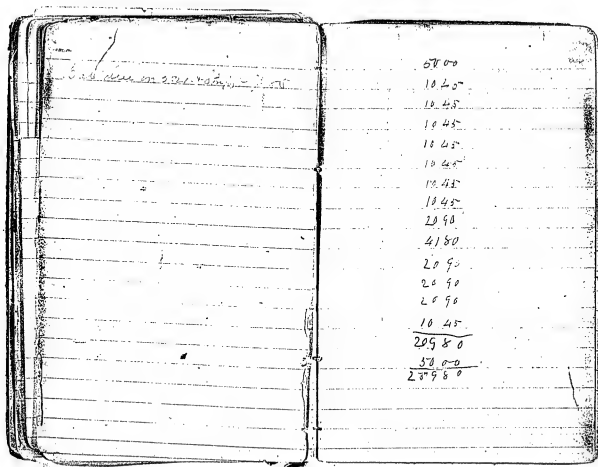 due on
50 00
10 45
10 45
10 45
10 45
10 45
10 45
10 45
20 90
41 80
20 90
20 90
20 90
10 45
209 80
50 00
259 80